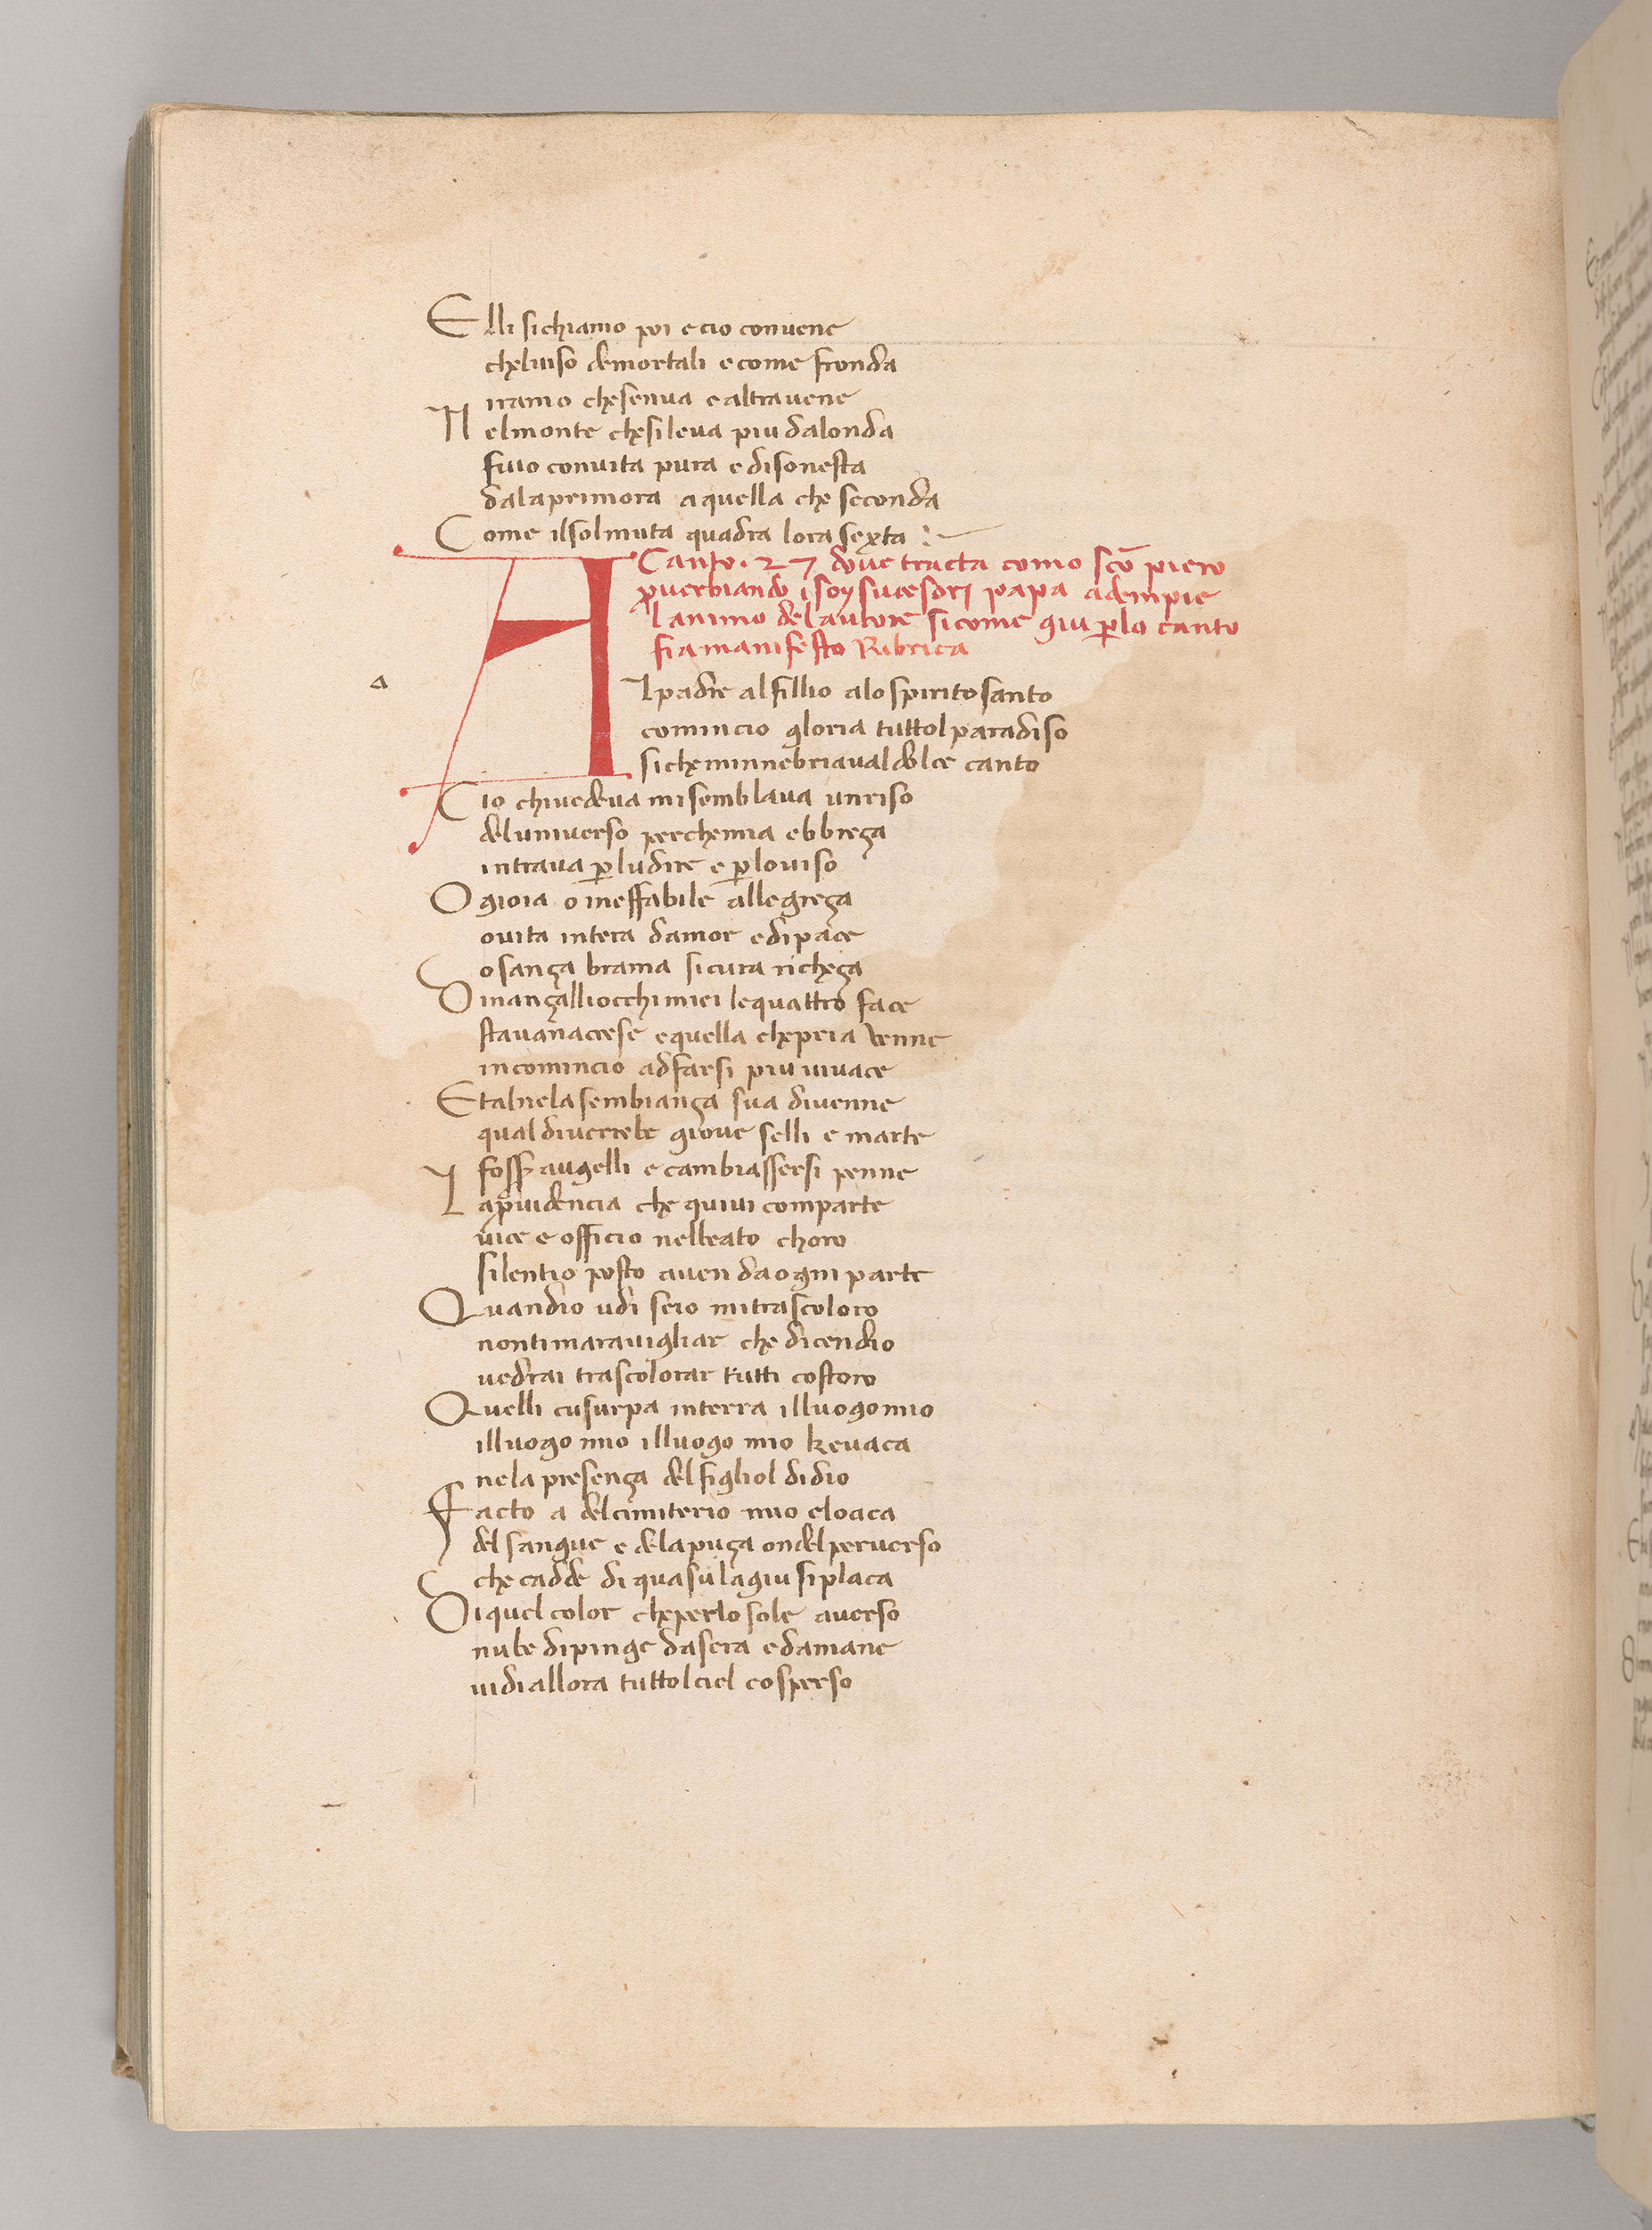 Elli sichiamo poi e cio convene
cheluiso demortali e come fronda
iramo chesenva e altra vene
Nelmonte chesileva piu dalonda
fuio convita pura e disonesta
dalaprimora a quella che seconda
Come ilsolmuta quadra lora sexta
Canto . 27 dove tracta como sc̄o piero
ꝓverbiando i soy sucesori papa adempie
lanimo del autore sicome qui ꝑlo canto
fia manifesto Ribrica
a
Al padre al fillio alo spirito santo
comincio gloria tuttol paradiso
siche minnebriaval dolce canto
Cio chivedeva mi semblava unriso
deluniverso perchemia ebbreça
intrava ꝑludire e ꝑloviso
O gioia o ineffabile allegreça
ovita intera damor edi pace
o sança brama sicura richeça
Dinançalliocchi miei le quattro face
stavanaccese equella chepria venne
incomincio adfarsi piu vivace
Etalnela sembiança sua divenne
qual diverrebe giove selli e marte
fosser̄ augelli e cambiassersi penne
Laꝓvidencia che quivi comparte
vice e officio nelbeato choro
silentio posto aven daogni parte
Quandio udi seio mitrascoloro
nonti maravigliar che dicendio
vedrai trascolorar tutti costoro
Quelli cusurpa interra illuogo mio
illuogo mio illuogo mio kevaca
nela presença del figliol didio
Facto a delcimiterio mio cloaca
del sangue e delapuça ondelperverso
che cadde di quasu lagiu siplaca
Diquel color cheperlo sole averso
nube dipinge dasera e damane
vidi allora tuttol ciel cosperso